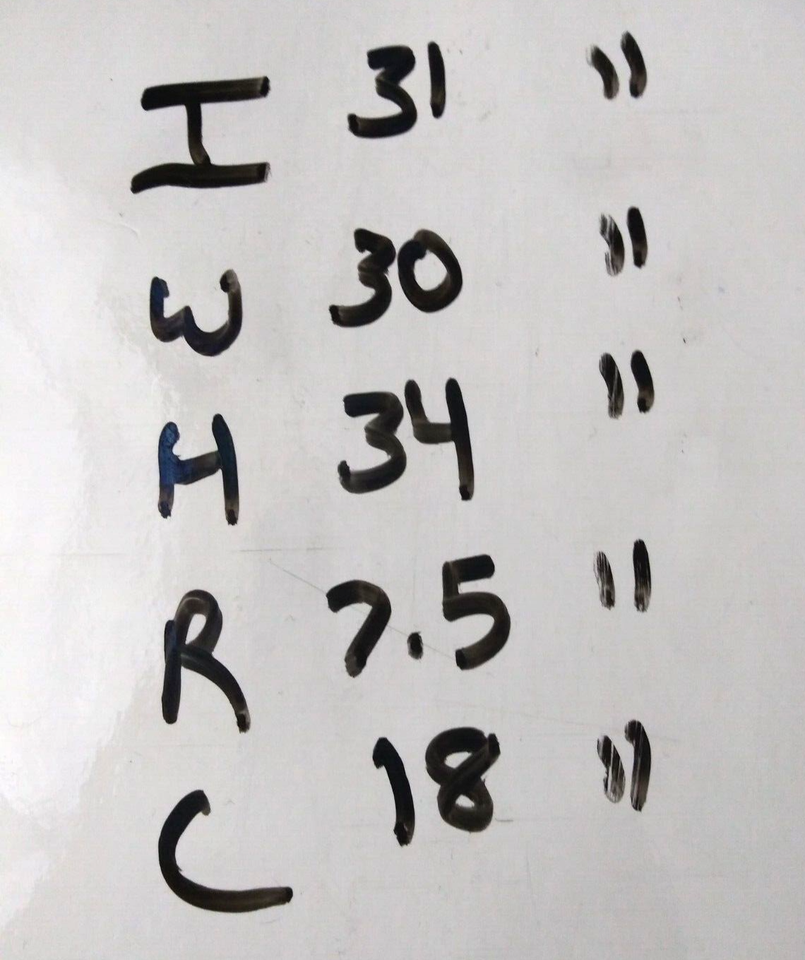 I 31 "
W 30 "
H 34 "
R 7.5 "
C 18 "